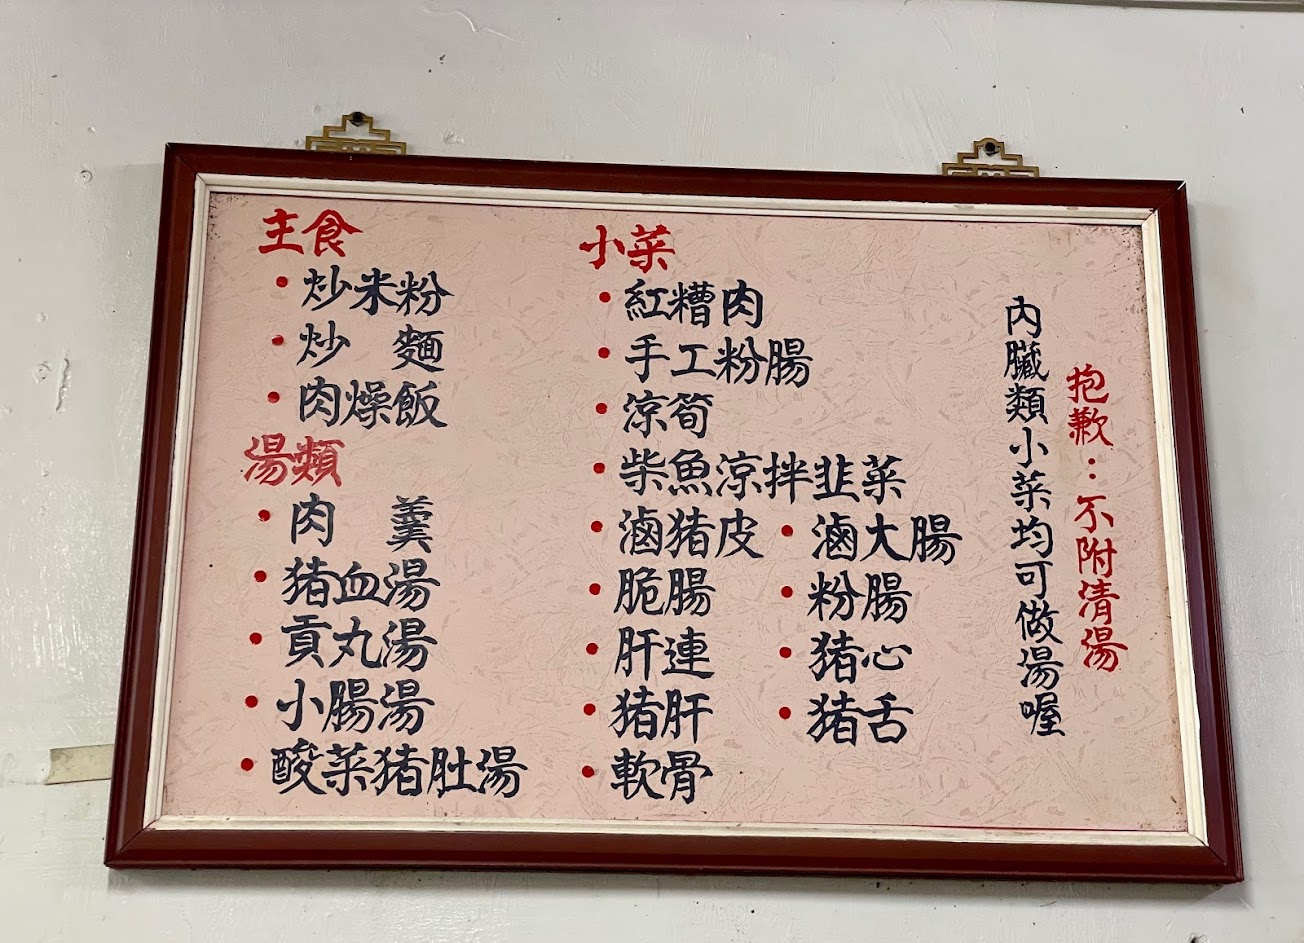 主食
•炒米粉
•炒 麵
•肉燥飯
湯類
•肉 羹
•猪血湯
•貢丸湯
•小腸湯
•酸菜猪肚湯
小菜
•紅糟肉
•手工粉腸
•涼筍
•柴魚涼拌韭菜
•滷猪皮 •滷大腸
•脆腸 •粉腸
•肝連 •猪心
•猪肝 •猪舌
•軟骨
內臟類小菜均可做湯喔
抱歉：不附清湯